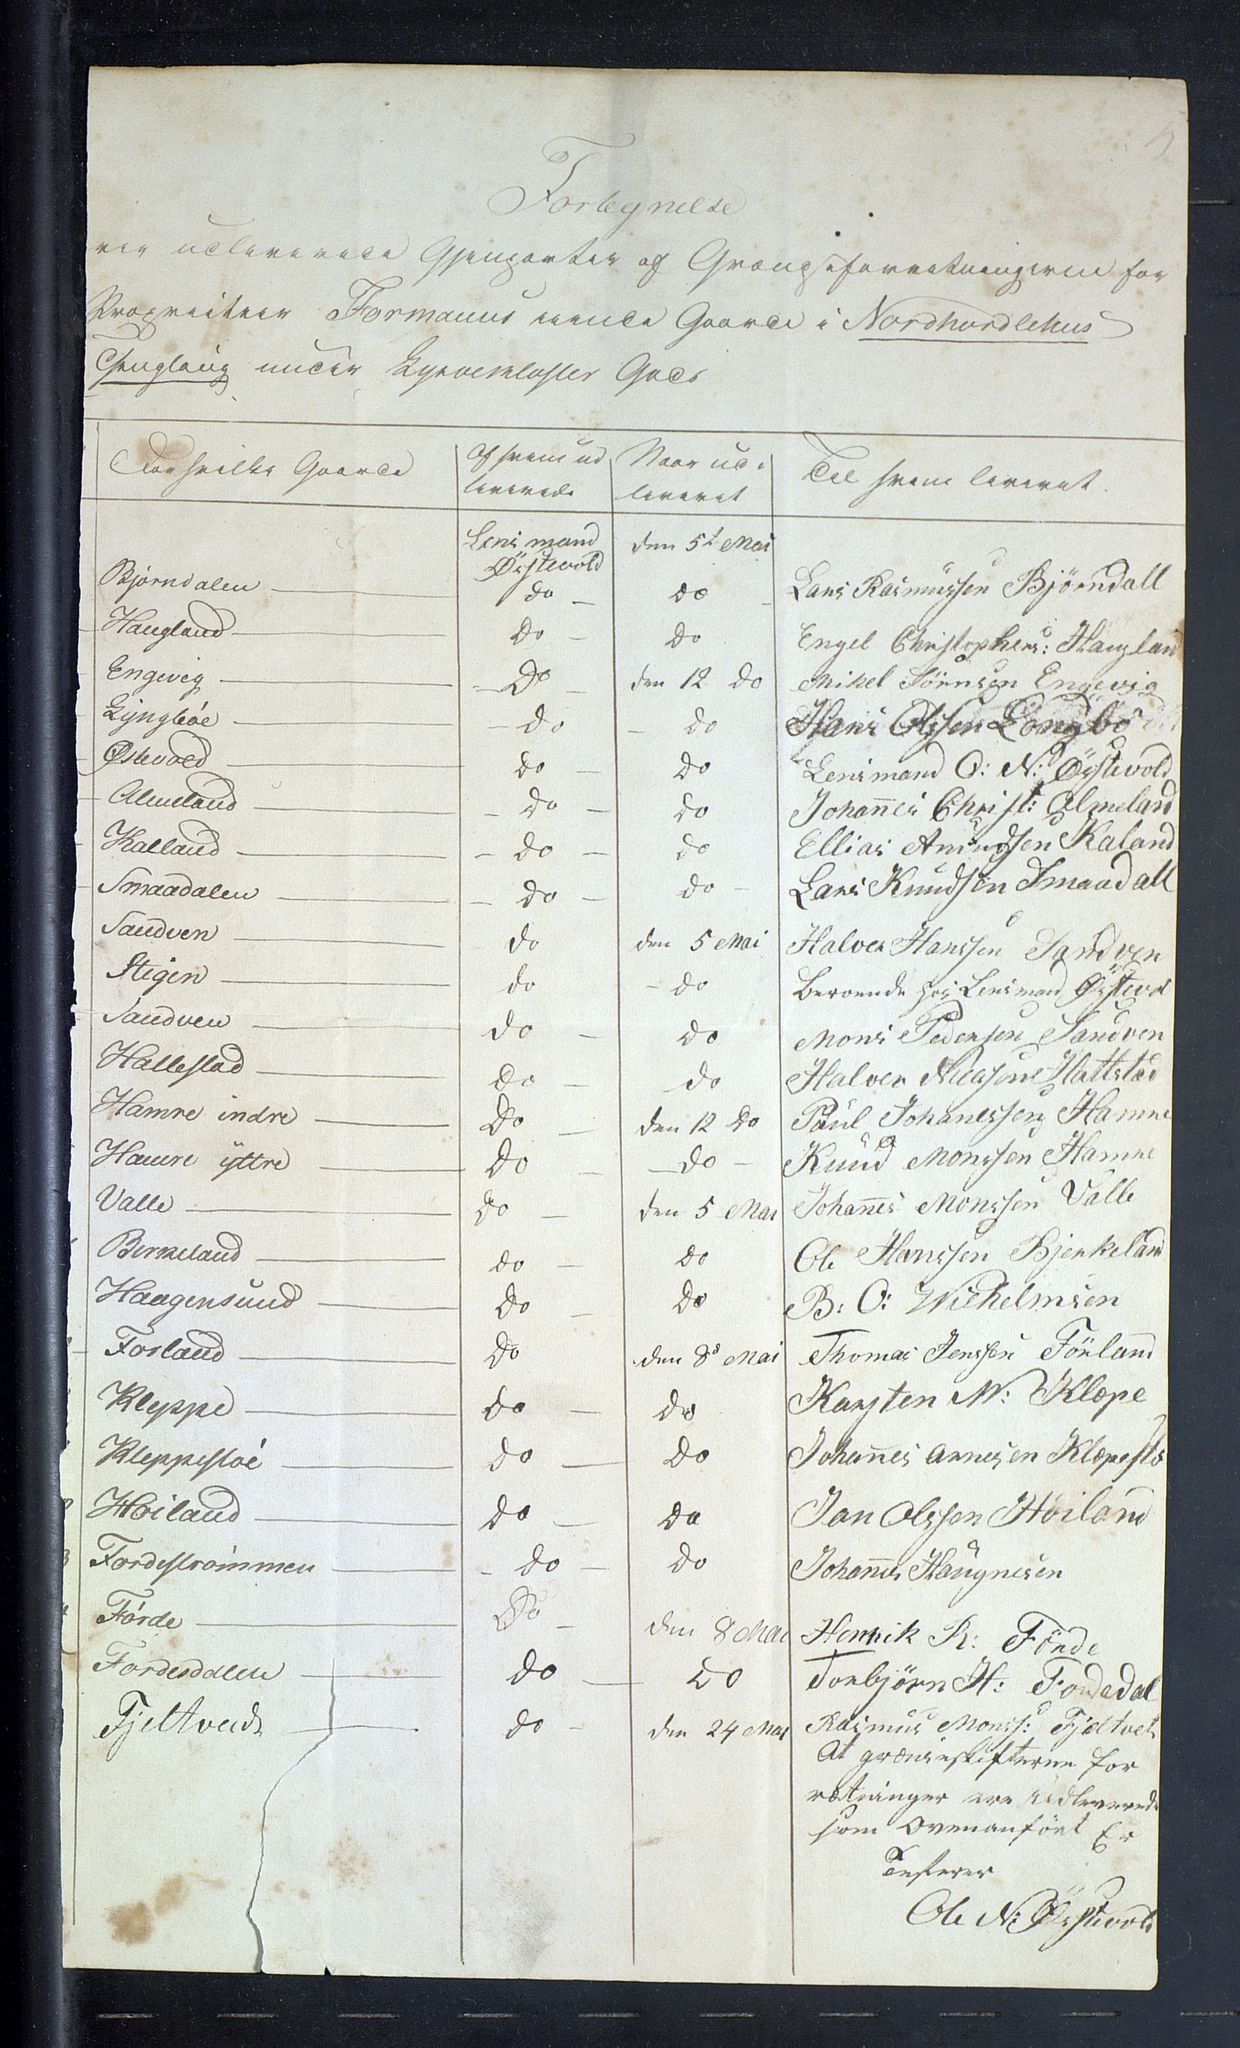 Fortegnelse
udleverede Gjenparter af Grændseforretningerne for
Proprietær Formanns eiende Gaarde i Nordhordlehns
Thinglaug under Lysekloster Gods
For hvilke Gaarde | Af hvem ud leverede | Naar ud- leveret | Til hvem leveret.
Lensmand Østevold | den 5t Mai
Bjørndalen | do | do | Lars Rasmussen Bjørndall
Haugland | Do | Do | Engel Christophers: Haugland
Engevig | Do | den 12 do | Mikel Sørnsen Engevig
Lyngbøe | do | do | Hans Olssen Löngbö
Østevold | do | do | Lensmand O: N: Østevold
Almeland | do | do | Johannes Christ: Almeland
Kalland | do | do | Ellias Amundsen Kaland
Smaadalen | do | do | Lars Knudsen Smaadall
Sandven | do | den 5 Mai | Halver Hanssen Sandven
Stegen | do | do | Beroende hos Lensmand Østevol
Sandven | do | do | Mons Pedersen Sandven
Hallestad | do | do | Halver Hattstad
Hamre indre | Do | den 12 do | Paul Johanessen Hamre
Hamre yttre | do | do | Knud Monssen Hamre
Valle | do | den 5 Mai | Johannes Monssen Valle
Berkeland | do | do | Ole Hanssen Bjerkeland
Haagensund | do | do | B: O: Wilhelmsen
Forland | do | den 8de Mai | Thomas Jenssen Förland
Kleppe | do | do | Karsten M: Klepe
Kleppestøe | do | do | Johannes Arnesen Klepestø
Høiland | do | do | Jan Olssen Höiland
Fordestrømmen | do | do | Johannes Haugnesen
Førde | Do | den 8 Mai | Henrik R: Förde
Fordesdalen | do | do | Torbjörn H: Fordedal
Fjeltveds | do | den 24 Mai | Rasmus Monss: Fjeltvet
At grænseskifterne for
retninger ere Udleverede
som Ovenanfört Er
Testerer
Ole N: Østevold